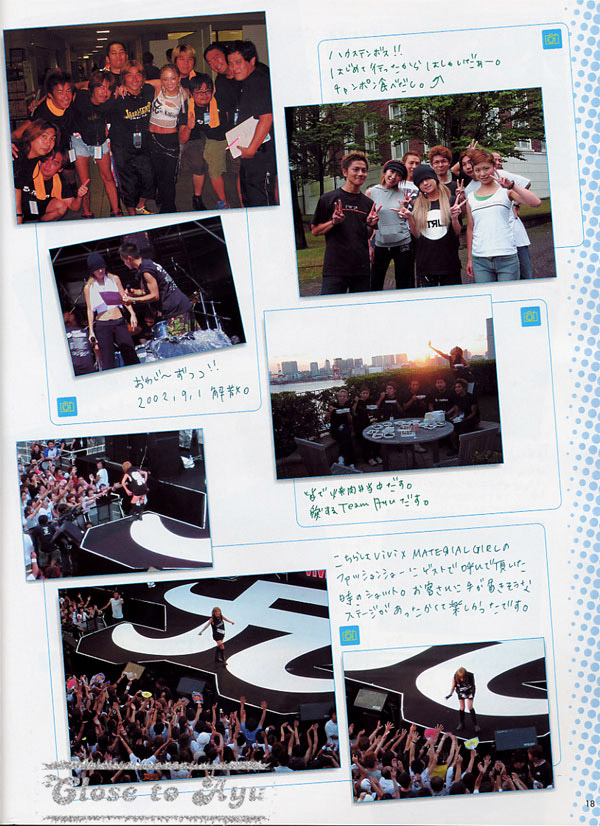 ハウステンボス!!
はじめて行ったからはしゃいだぁー。
チャンポン食べたし。
TRL
おわび〜ずっつ!!
2002.9.1 解散×。
皆で焼肉弁当中だす。
愛するTeam Ayuだす。
こちらしてViVi×MATERIALGIRLの
ファッションショーにゲストで呼んで頂いた
時のショット。お客さんに手が届きそうな
ステージがあったかくて楽しかったです。
Close to Ayu
18